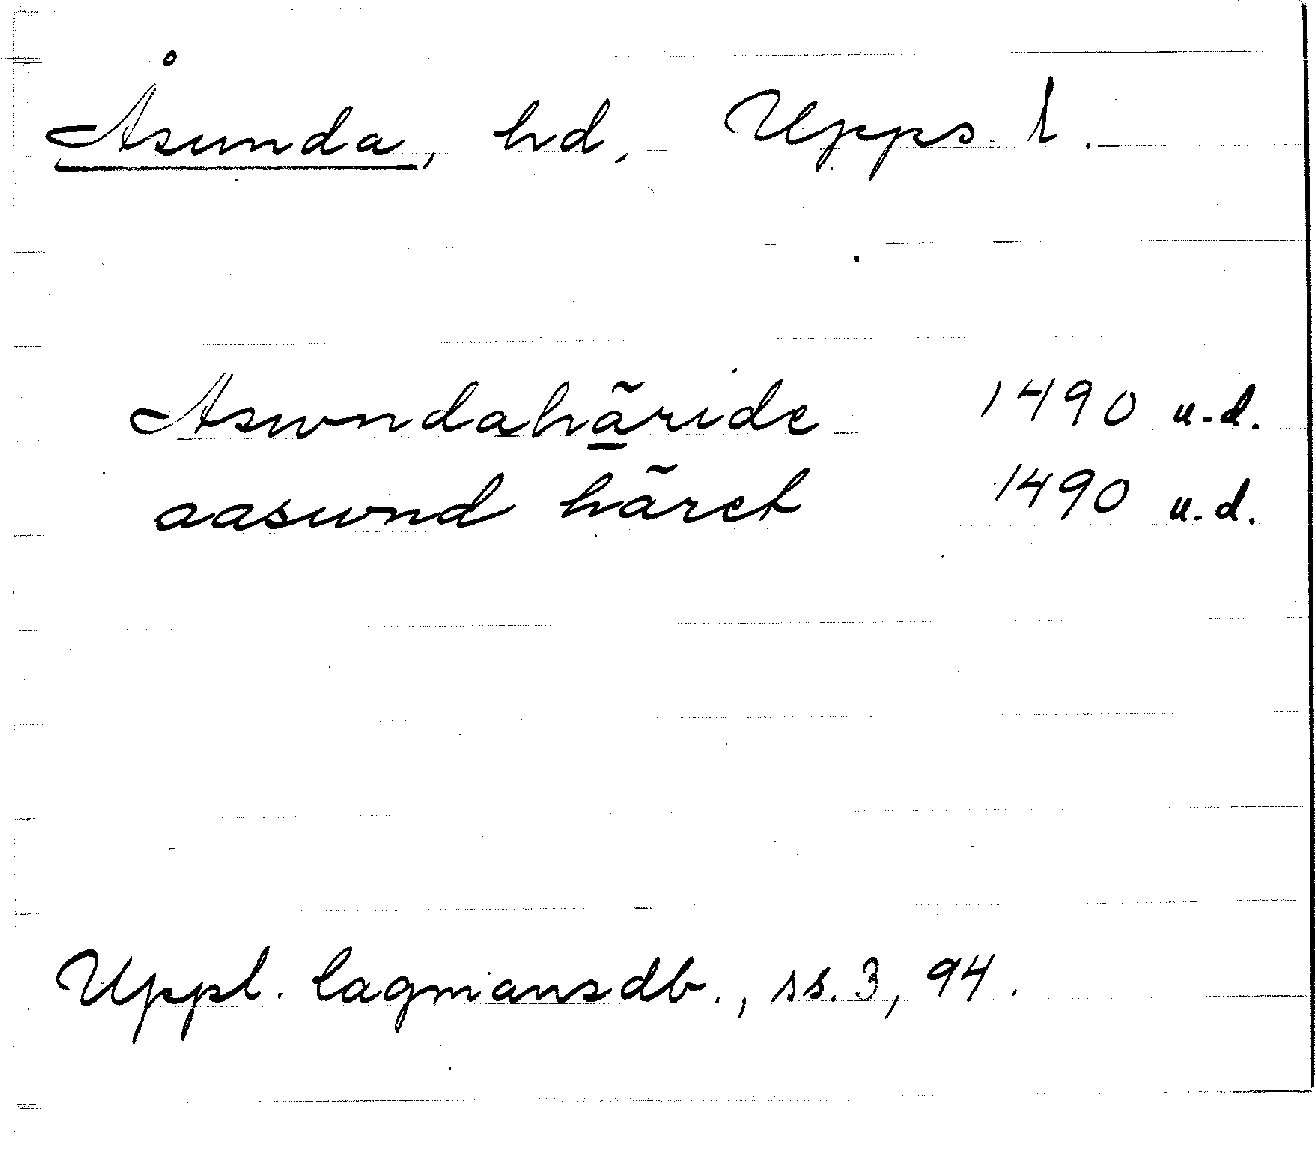 Åsunda, hd, Upps. l.
Aswndahäride 1490 u.d.
aaswnd häret 1490 u.d.
Uppl. lagmansdb., ss. 3, 94.